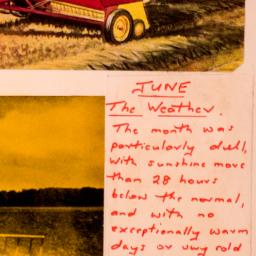 JUNE
The Weather.
The month was
particularly dull,
with sunshine more
than 28 hours
below the normal,
and with no
exceptionally warm
days or very cold